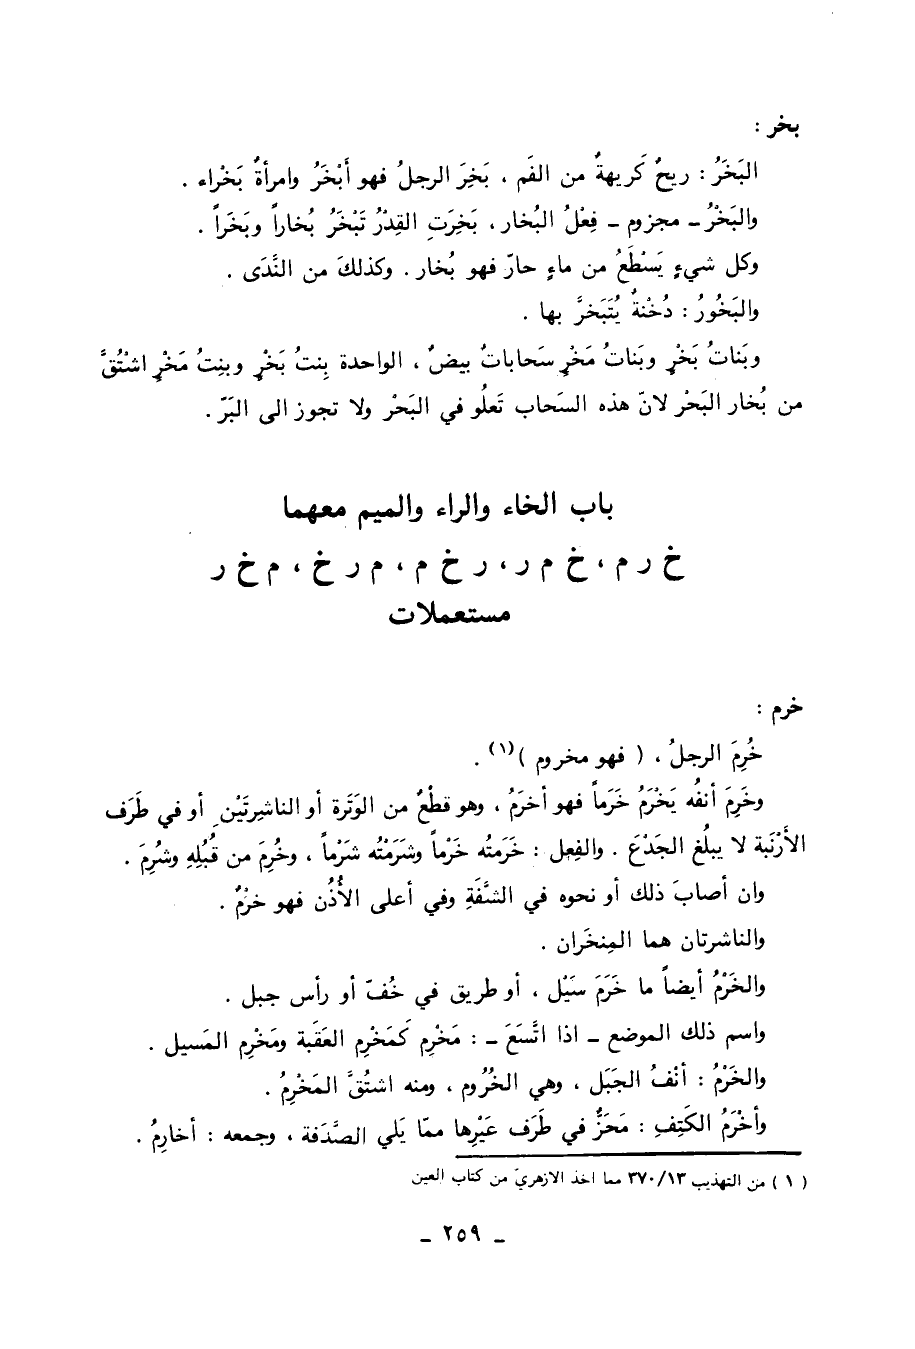 بخر :
البَخَرُ : ريحٌ كَريهةٌ من الفَم ، بَخِرَ الرجلُ فهو أَبْخَرُ وامرأةٌ بَخْراء .
والبَخْرُ ـ مجزوم ـ فِعْلُ البُخار ، بَخِرَتِ القِدْرُ تَبْخَرُ بُخاراً وبَخَراً .
وكل شيءٍ يَسْطَعُ من ماءٍ حارّ فهو بُخار . وكذلكَ من النَّدَى .
والبَخُورُ : دُخْنةٌ يُتَبَخرَّ بها .
وبَناتُ بَخْرٍ وبَناتُ مَخْرٍ سَحاباتٌ بيضٌ ، الواحدة بِنتُ بَخْرٍ وبنِتُ مَخْرٍ اشتُقَّ
من بُخار البَحْر لانّ هذه السَحاب تَعلُو في البَحْر ولا تجوز الى البَرّ .
باب الخاء والراء والميم معهما
خ ر م ، خ م ر ، ر خ م ، م ر خ ، م خ ر
مستعملات
خرم :
خُرِمَ الرجلُ ، ( فهو مخروم )(١) .
وخَرِمَ أنفُه يَخْرَمُ خَرَماً فهو أخرَمُ ، وهو قطْعٌ من الوَتَرة أو الناشِرتَيْن أو في طَرَف
الأَرْنَبة لا يبلُغ الجَدْعَ . والفِعل : خَرَمتُه خَرْماً وشَرَمْتُه شَرْماً ، وخُرِمَ من قُبُلِهِ وشُرِمَ .
وان أصابَ ذلك أو نحوه في الشَّفَةِ وفي أعلى الأُذُن فهو خرْمٌ .
والناشرتان هما المِنخَران .
والخَرْمُ أيضاً ما خَرَمَ سَيْل ، أو طريق في خُفّ أو رأس جبل .
واسم ذلك الموضع ـ اذا اتَّسَعَ ـ : مَخْرِم كَمَخْرِم العَقَبة ومَخْرِم المَسيل .
والخَرْمُ : أَنْفُ الجَبَل ، وهي الخُرُوم ، ومنه اشتُقَّ المَخْرِمُ .
وأخْرَمُ الكَتِفِ : مَحَزٌّ في طَرَف عَيْرِها ممّا يَلي الصَّدَفة ، وجمعه : أخارِمُ .
( ١ ) من التهذيب ٣٧٠/١٣ مما اخذ الازهريّ من كتاب العين
ـ ٢٥٩ ـ